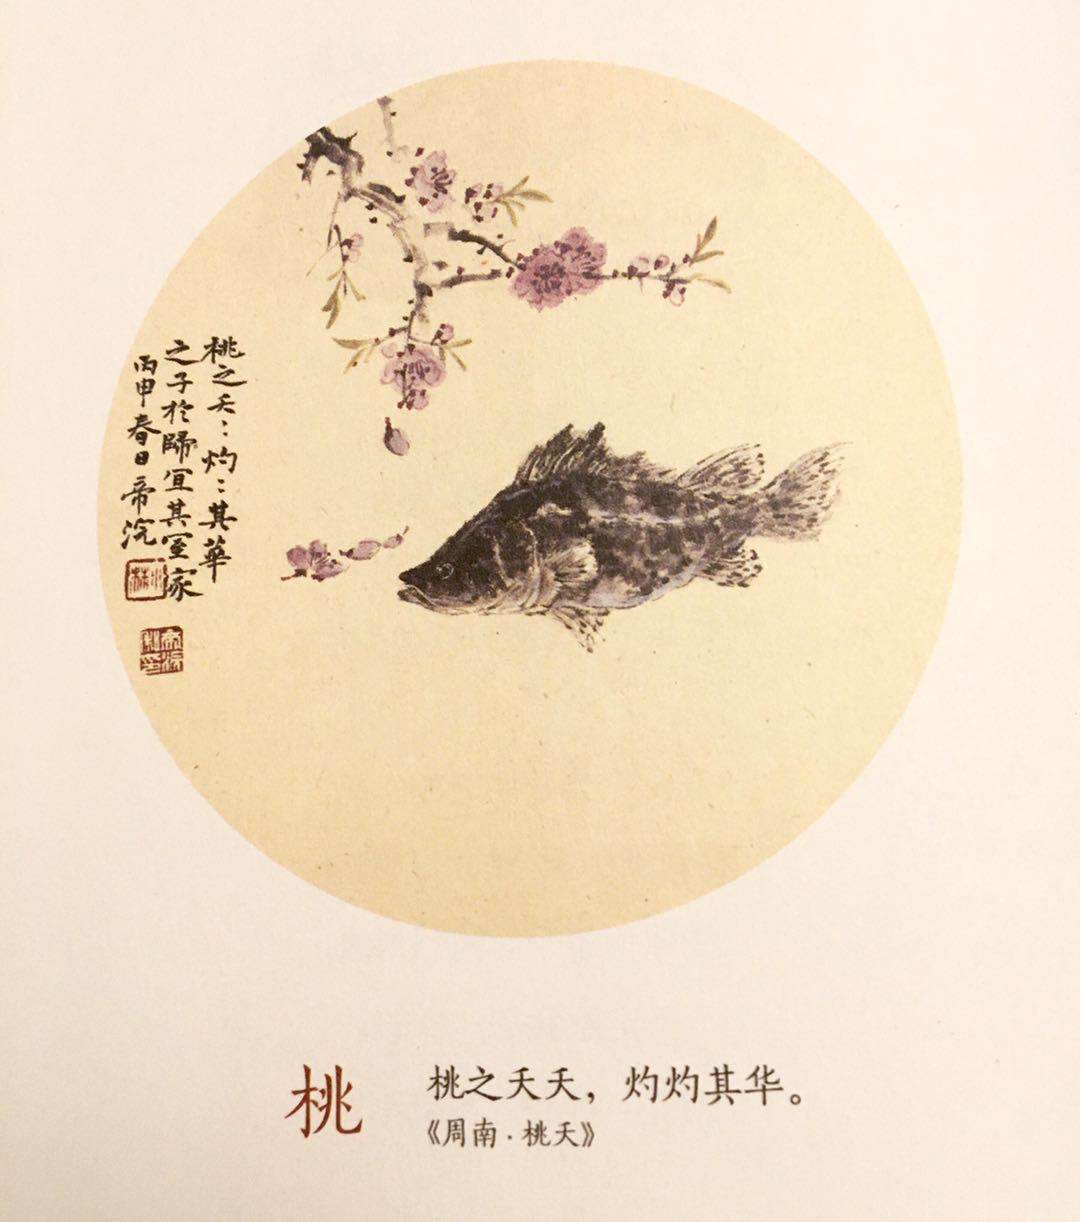 桃之夭〻灼〻其華
之子於歸宜其室家
丙申春日帝浣
桃
桃之夭夭，灼灼其华。
《周南·桃夭》